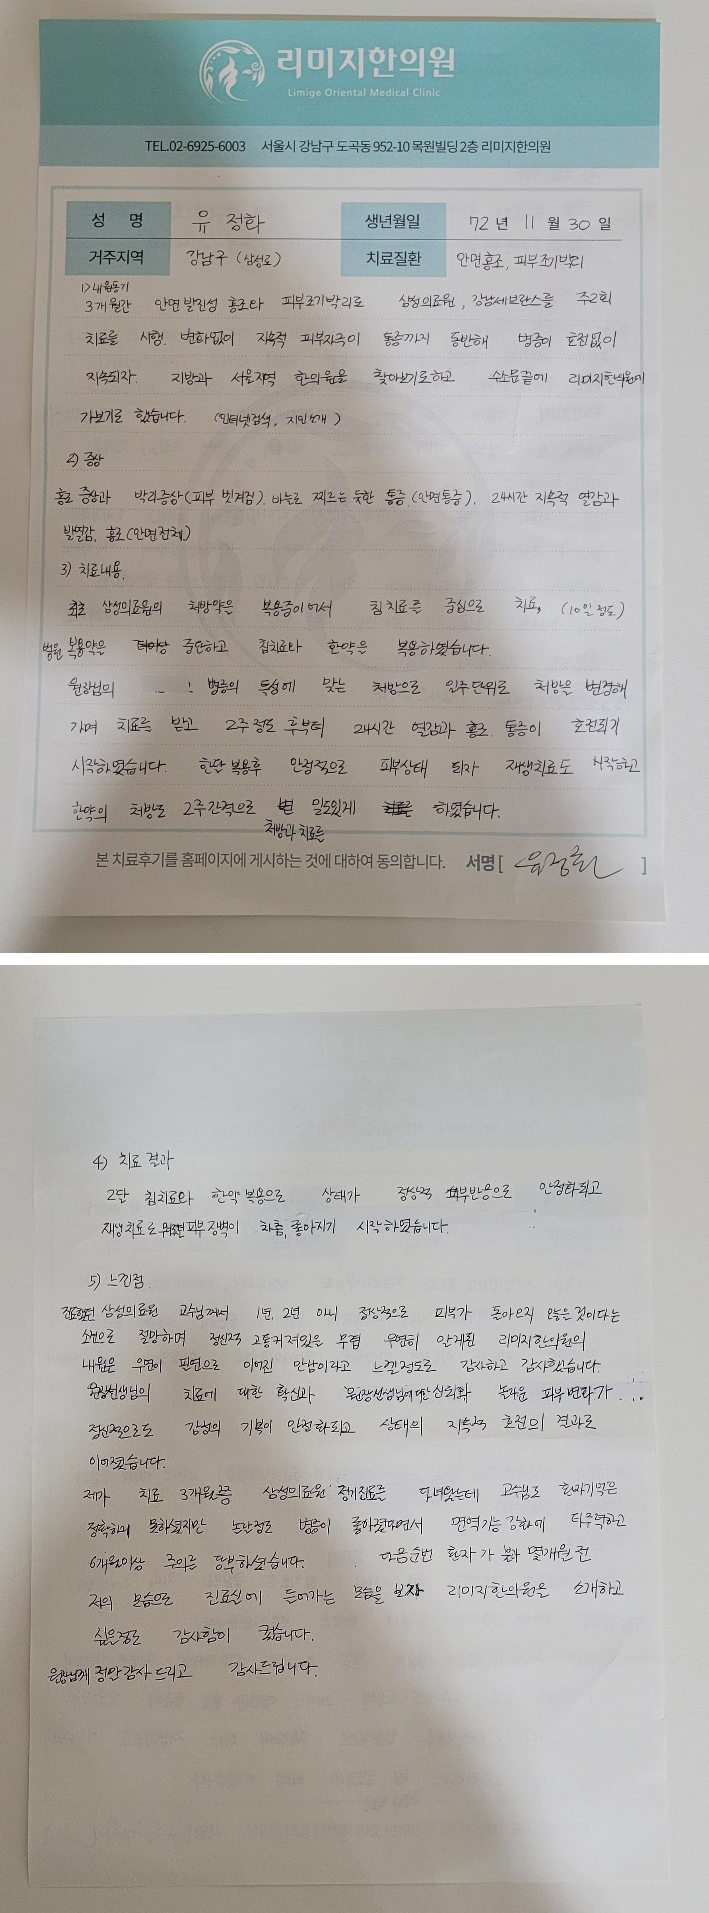 리미지한의원
Limige Oriental Medical Clinic
TEL.02-6925-6003 서울시 강남구 도곡동 952-10 목원빌딩 2층 리미지한의원
성 명 유 정화 생년월일 72 년 11 월 30 일
거주지역 강남구 (삼성로) 치료질환 안면홍조, 피부조기박리
1) 내원동기
3개월간 안면 발진성 홍조와 피부조기박리로 삼성의료원, 강남세브란스를 주2회
치료를 시행. 변화없이 지속적 피부자극이 통증까지 동반해 병증이 호전없이
지속되자. 지방과 서울지역 한의원을 찾아보기로하고 수소문끝에 리미지한의원에
가보기로 했습니다. (인터넷검색, 지인소개)
2) 증상
홍조 증상과 박리증상(피부 벗겨짐). 바늘로 찌르는 듯한 통증.(안면통증). 24시간 지속적 열감과
발열감, 홍조(안면전체)
3) 치료내용.
최초 삼성의료원의 처방약은 복용중이어서 침치료를 중심으로 치료, (10일정도)
병원 복용약은 중단하고 침치료와 한약을 복용하였습니다.
원장님의 병증의 특성에 맞는 처방으로 일주단위로 처방을 변경해
가며 치료를 받고 2주정도 후부터 24시간 열감과 홍조. 통증이 호전되기
시작하였습니다. 한달 복용후 안정적으로 피부상태 되자 재생치료도 시작하고
한약의 처방도 2주간격으로 밀도있게 하였습니다.
처방과 치료를
본 치료후기를 홈페이지에 게시하는 것에 대하여 동의합니다. 서명 [ 유정화 ]
4) 치료결과
2달 침치료와 한약 복용으로 상태가 정상적 피부반응으로 안정화되고
재생치료로 피부장벽이 차츰, 좋아지기 시작하였습니다.
5) 느낀점
진료했던 삼성의료원 교수님께서 1년, 2년 아니 정상적으로 피부가 돌아오지 않을것이다는
소견으로 절망하며 정신적 고통커져있을 무렵 우연히 알게된 리미지한의원의
내원은 우연이 필연으로 이어진 만남이라고 느낄정도로 감사하고 감사했습니다.
원장선생님의 치료에 대한 확신과 원장선생님에대한 신뢰와 놀라운 피부변화가
정신적으로도 감정의 기복이 안정화되고 상태의 지속적 호전의 결과로
이어졌습니다.
제가 치료 3개월쯤 삼성의료원 정기진료를 다녀왔는데 교수님도
정확하게 못하셨지만 놀란정도로 병증이 좋아졌다면서 면역기능 강화에 더주력하고
6개월이상 주의를 당부하셨습니다. 다음순번 환자가 불과 몇개월 전
저의 모습으로 진료실에 들어가는 모습을 보자 리미지한의원을 소개하고
싶을정도 감사함이 컸습니다.
원장님께 정말 감사드리고 감사드립니다.